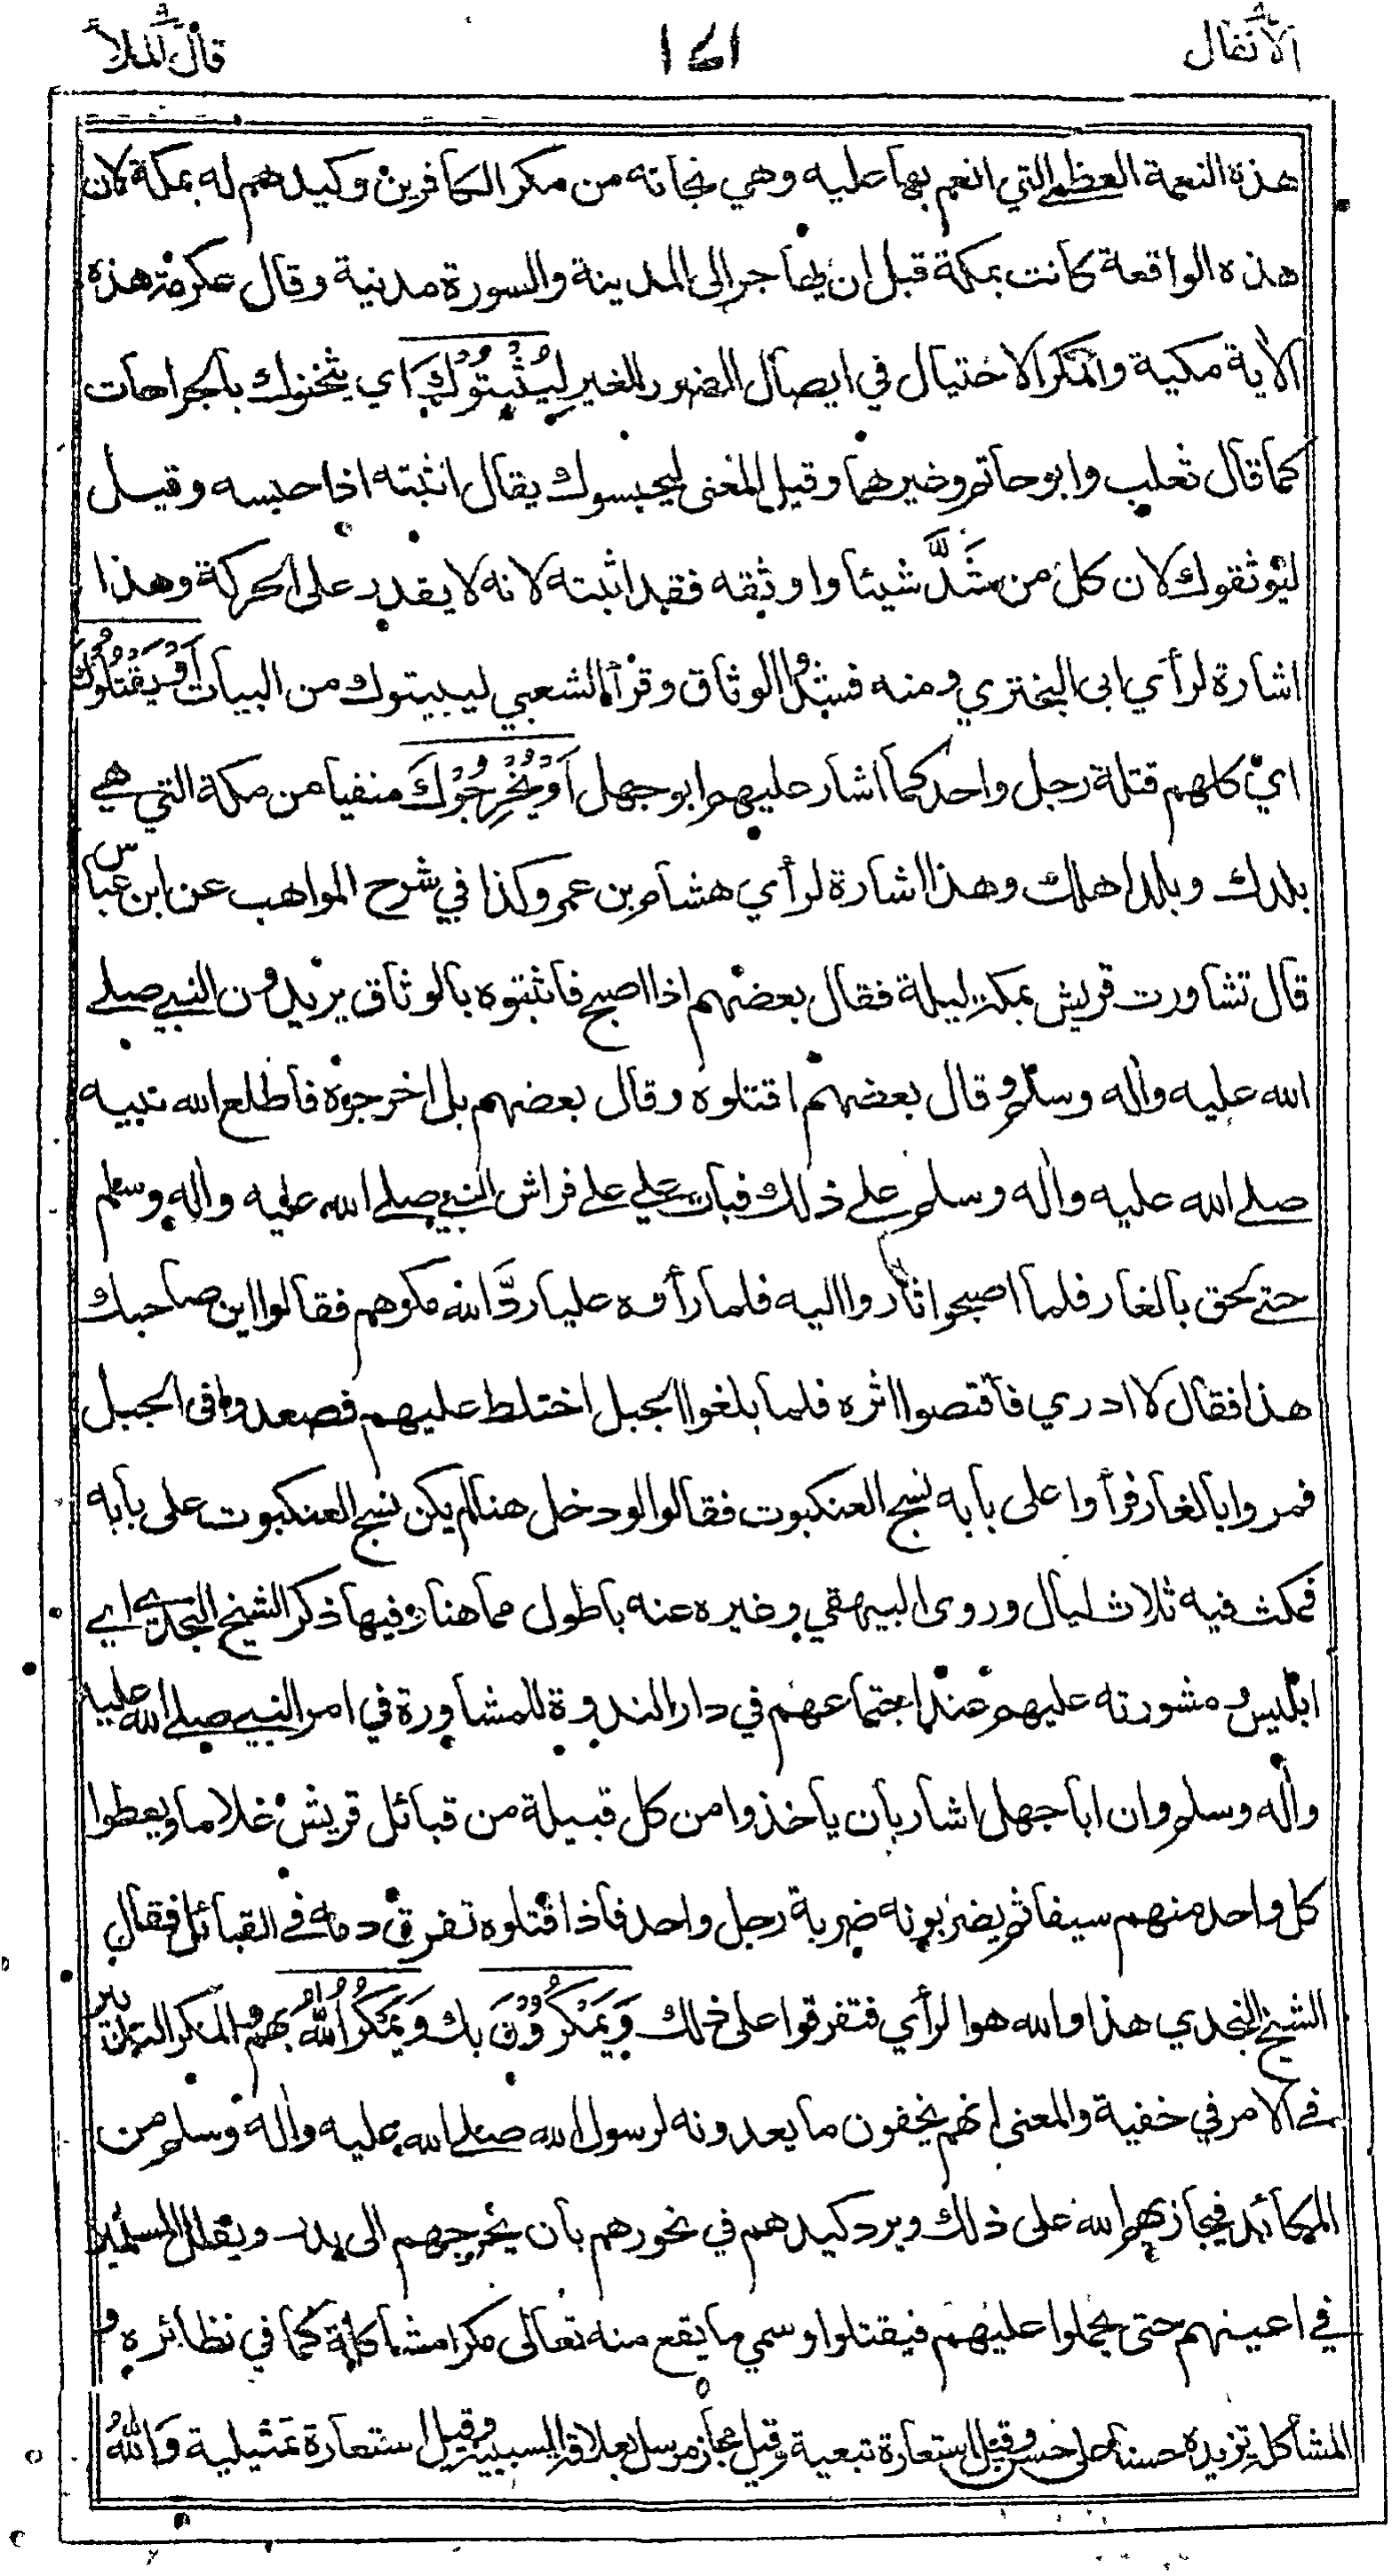 الأنفال ١٤١ قال الملأ
هذه النعمة العظمى التي انعم بها عليه وهي نجاته من مكر الكافرين وكيدهم له بمكة لان
هذه الواقعة كانت بمكة قبل ان يهاجر الى المدينة والسورة مدنية وقال عكرمة هذه
الأية مكية والمكر الاحتيال في ايصال الضرر للغير لِيُثْبِتُوْكَ اي يثخنوك بالجراحات
كما قال ثعلب وابو حاتم وغيرهما وقيل المعنى ليحبسوك يقال اثبته اذا حبسه وقيل
ليوثقوك لان كل من شدَّ شيئا واوثقه فقد اثبته لانه لا يقدر على الحركة وهذا
اشارة لرأي ابى البختري ومنه فشدوا الوثاق وقرأ الشعبي ليبيتوك من البيات أَوْ يَقْتُلُوْكَ
اي كلهم قتلة رجل واحد كما اشار عليهم ابو جهل أَوْ يُخْرِجُوْكَ منفيا من مكة التي هي
بلدك وبلد اهلك وهذا اشارة لرأي هشام بن عمرو كذا في شرح المواهب عن ابن عباس
قال تشاورت قريش بمكة ليلة فقال بعضهم اذا اصبح فاثبتوه بالوثاق يريدون النبي صلے
الله عليه واٰله وسلم وقال بعضهم اقتلوه وقال بعضهم بل اخرجوه فاطلع الله نبيه
صلے الله عليه واٰله وسلم على ذلك فبات علي على فراش النبي صلے الله عليه واٰله وسلم
حتى لحق بالغار فلما اصبحوا ثاروا اليه فلما رأوه عليا ردَّ الله مكرهم فقالوا اين صاحبك
هذا فقال لا ادري فاقتصوا اثره فلما بلغوا الجبل اختلط عليهم فصعدوا في الجبل
فمروا بالغار فرأوا على بابه نسج العنكبوت فقالوا لو دخل هنا لم يكن نسج العنكبوت على بابه
فمكث فيه ثلاث ليال وروى البيهقي وغيره عنه باطول مما هنا وفيها ذكر الشيخ النجدي اي
ابليس ومشورته عليهم عند اجتماعهم في دار الندوة للمشاورة في امر النبي صلے الله عليه
واٰله وسلم وان ابا جهل اشار بان ياخذوا من كل قبيلة من قبائل قريش غلاما ويعطوا
كل واحد منهم سيفا ثم يضربونه ضربة رجل واحد فاذا قتلوه تفرق دمه في القبائل فقال
الشيخ النجدي هذا والله هو الرأي فتفرقوا على ذلك وَيَمْكُرُوْنَ بك وَيَمْكُرُ اللهُ بهم والمكر التدبير
في الامر في خفية والمعنى انهم يخفون ما يعدونه لرسول الله صلے الله عليه واٰله وسلم من
المكائد فيجازيهم الله على ذلك ويرد كيدهم في نحورهم بان يخرجهم الى بدر ويقلل المسلمين
في اعينهم حتى يحملوا عليهم فيقتلوا وسمي ما يقع منه تعالى مكرا مشاكلة كما في نظائره و
المشاكلة تزيده حسنا على حسن وقيل استعارة تبعية وقيل مجاز مرسل بعلاقة السببية وقيل استعارة تمثيلية وَاللهُ